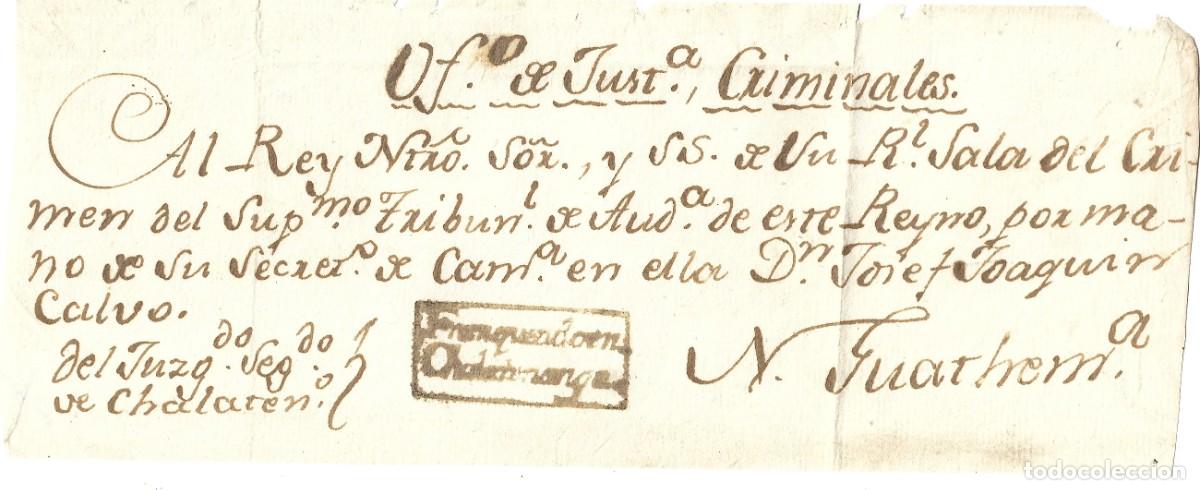 Of.º de Just.ª, Criminales.
Al Rey Ntrõ. Sõr., y SS. de Su R.l Sala del Cri-
men del Sup.mo Tribun.l de Aud.ª de este Reyno, por ma-
no de su Secret.º de Cam.ª en ella D.n Josef Joaquin
Calvo.
del Juzg.do Seg.do
de Chalaten.º
Franqueado en
Chalatenango.
N. Guathem.ª
todocoleccion